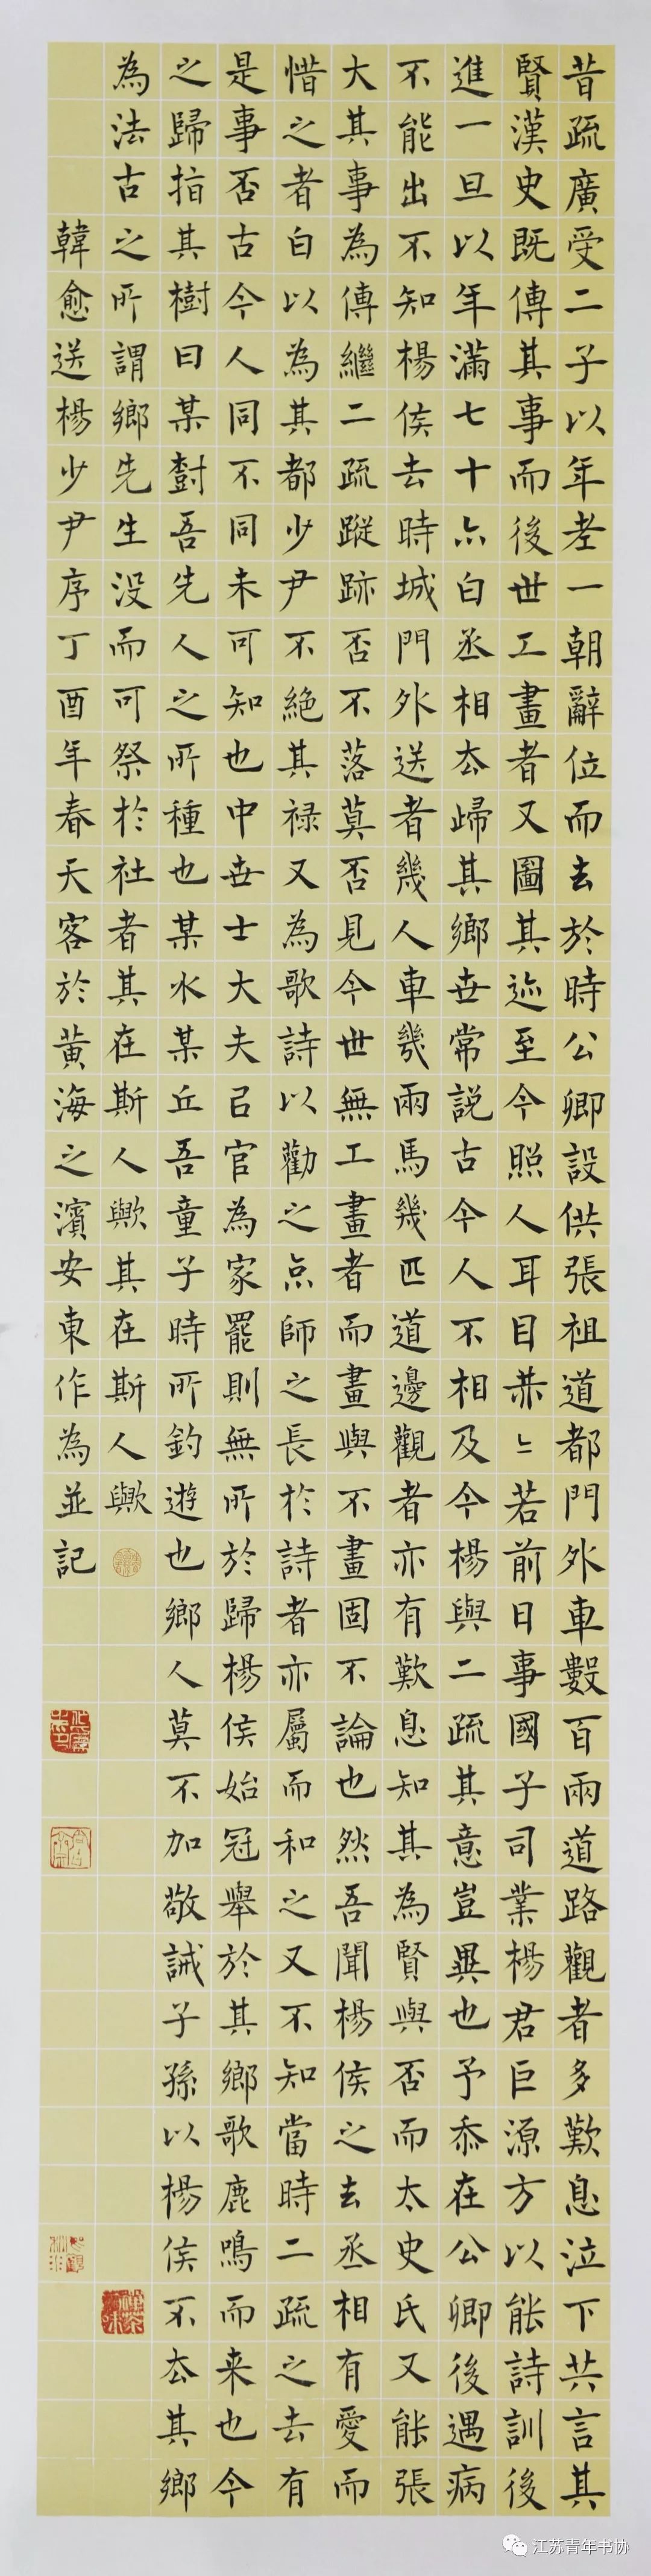 昔疏廣受二子以年老一朝辭位而去於時公卿設供張祖道都門外車數百兩道路觀者多歎息泣下共言其
賢漢史既傳其事而後世工畫者又圖其迹至今照人耳目赫〻若前日事國子司業楊君巨源方以能詩訓後
進一旦以年滿七十亦白丞相去歸其鄉世常說古今人不相及今楊與二疏其意豈異也予忝在公卿後遇病
不能出不知楊侯去時城門外送者幾人車幾兩馬幾匹道邊觀者亦有歎息知其為賢與否而太史氏又能張
大其事為傳繼二疏蹤跡否不落莫否見今世無工畫者而畫與不畫固不論也然吾聞楊侯之去丞相有愛而
惜之者白以為其都少尹不絕其祿又為歌詩以勸之京師之長於詩者亦屬而和之又不知當時二疏之去有
是事否古今人同不同未可知也中世士大夫以官為家罷則無所於歸楊侯始冠舉於其鄉歌鹿鳴而来也今
之歸指其樹曰某樹吾先人之所種也某水某丘吾童子時所釣遊也鄉人莫不加敬誡子孫以楊侯不去其鄉
為法古之所謂鄉先生沒而可祭於社者其在斯人歟其在斯人歟
韓愈送楊少尹序丁酉年春天客於黃海之濱安東作為並記
江苏青年书协